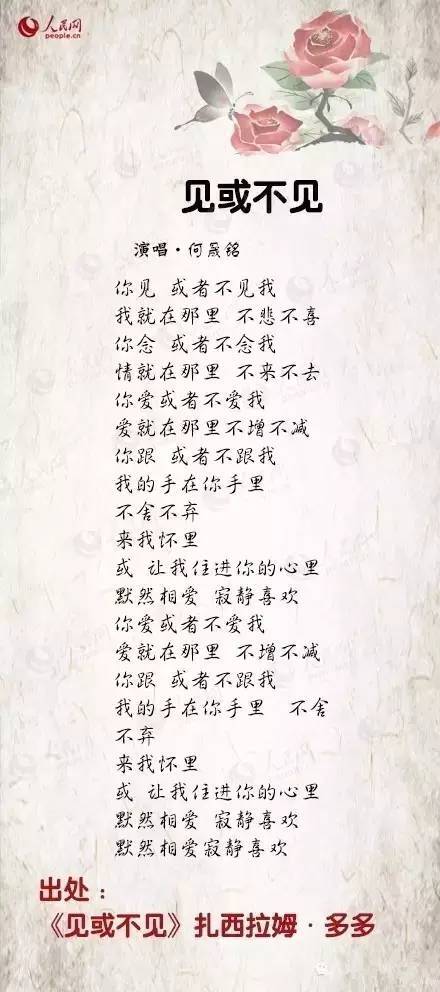 人民网
people.cn
见或不见
演唱·何晟铭
你见 或者不见我
我就在那里 不悲不喜
你念 或者不念我
情就在那里 不来不去
你爱或者不爱我
爱就在那里不增不减
你跟 或者不跟我
我的手在你手里
不舍不弃
来我怀里
或 让我住进你的心里
默然相爱 寂静喜欢
你爱或者不爱我
爱就在那里 不增不减
你跟 或者不跟我
我的手在你手里 不舍
不弃
来我怀里
或 让我住进你的心里
默然相爱 寂静喜欢
默然相爱寂静喜欢
出处：
《见或不见》扎西拉姆·多多